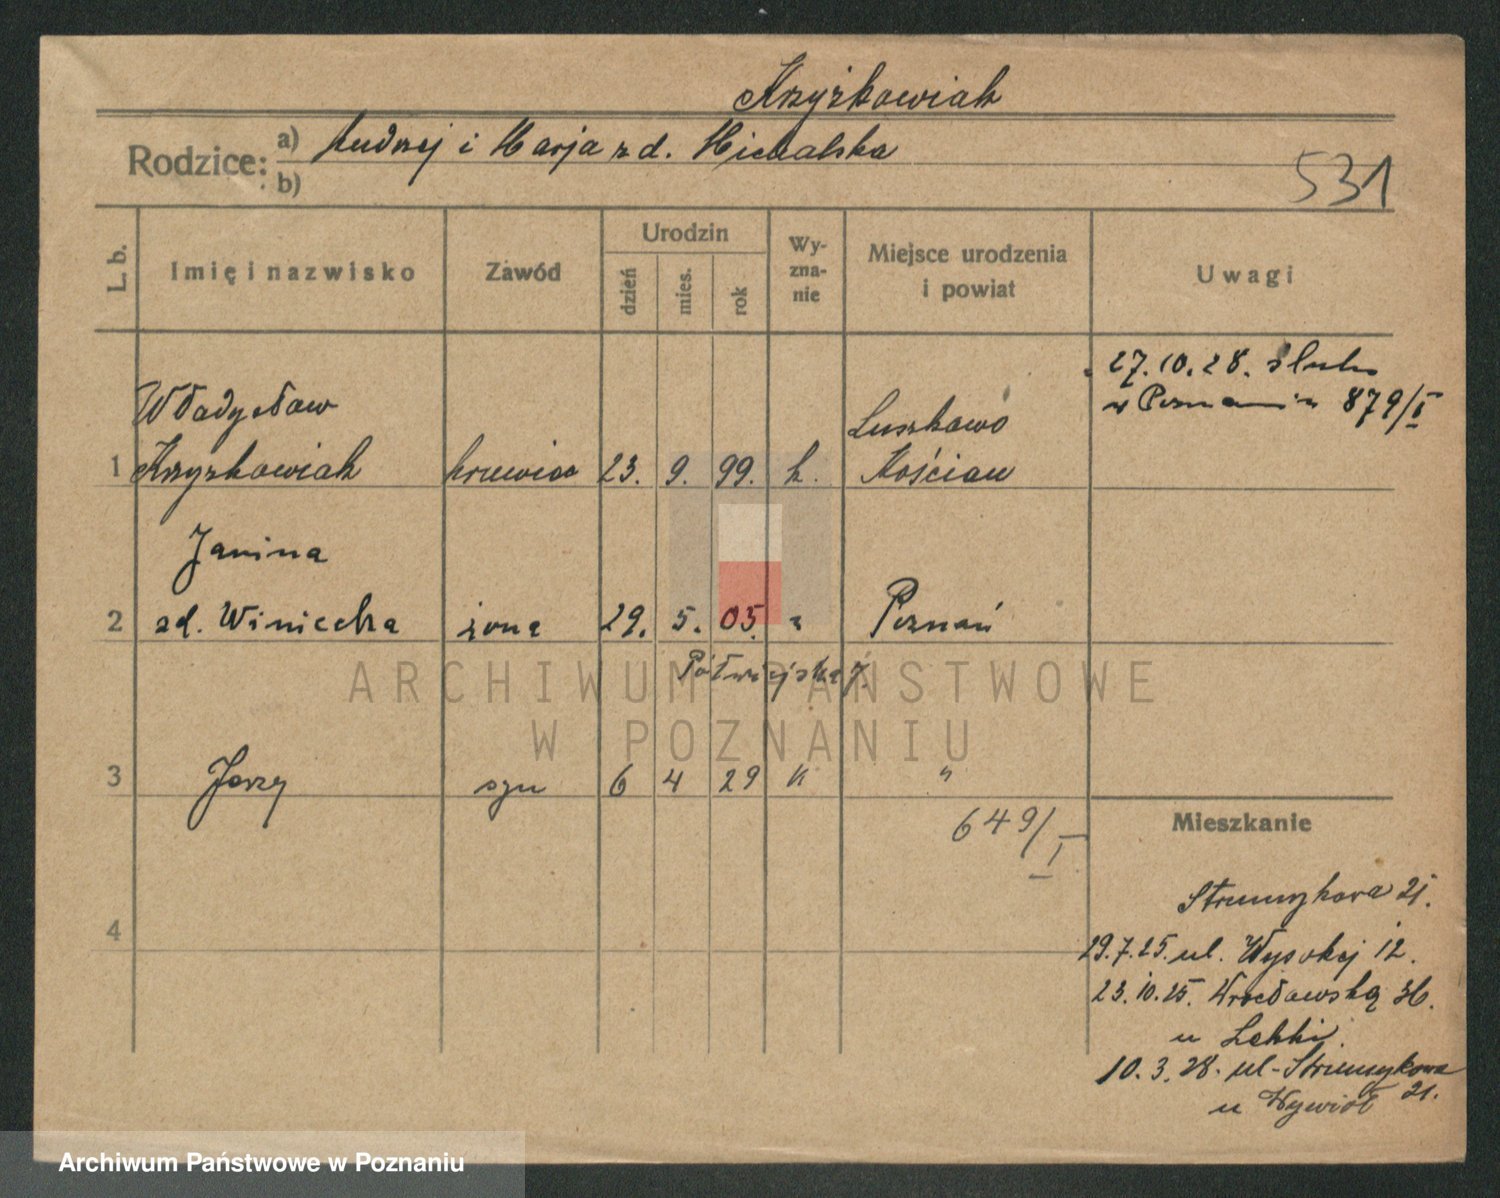 Krzyżkowiak
Rodzice: a) Andrzej i Marja z d. Michalska
b)
531
L. b. Imię i nazwisko Zawód Urodzin dzień mies. rok Wy-zna-nie Miejsce urodzenia i powiat Uwagi
27.10.28. ślub
w Poznaniu 879/I
Władysław Luszkowo
1 Krzyżkowiak krawiec 23. 9. 99. k. Kościan
Janina
2 zd. Winiecka żona 29. 5. 05. " Poznań
Półwiejska 7.
ARCHIWUM PAŃSTWOWE
W POZNANIU
3 Jerzy syn 6 4 29 K "
649/I
Mieszkanie
4
Strumykowa 21.
29.7.25. ul. Wysokiej 12.
23.10.25. Wrocławską 36.
u
10.3.28. ul. Strumykowa
21.
u
Archiwum Państwowe w Poznaniu